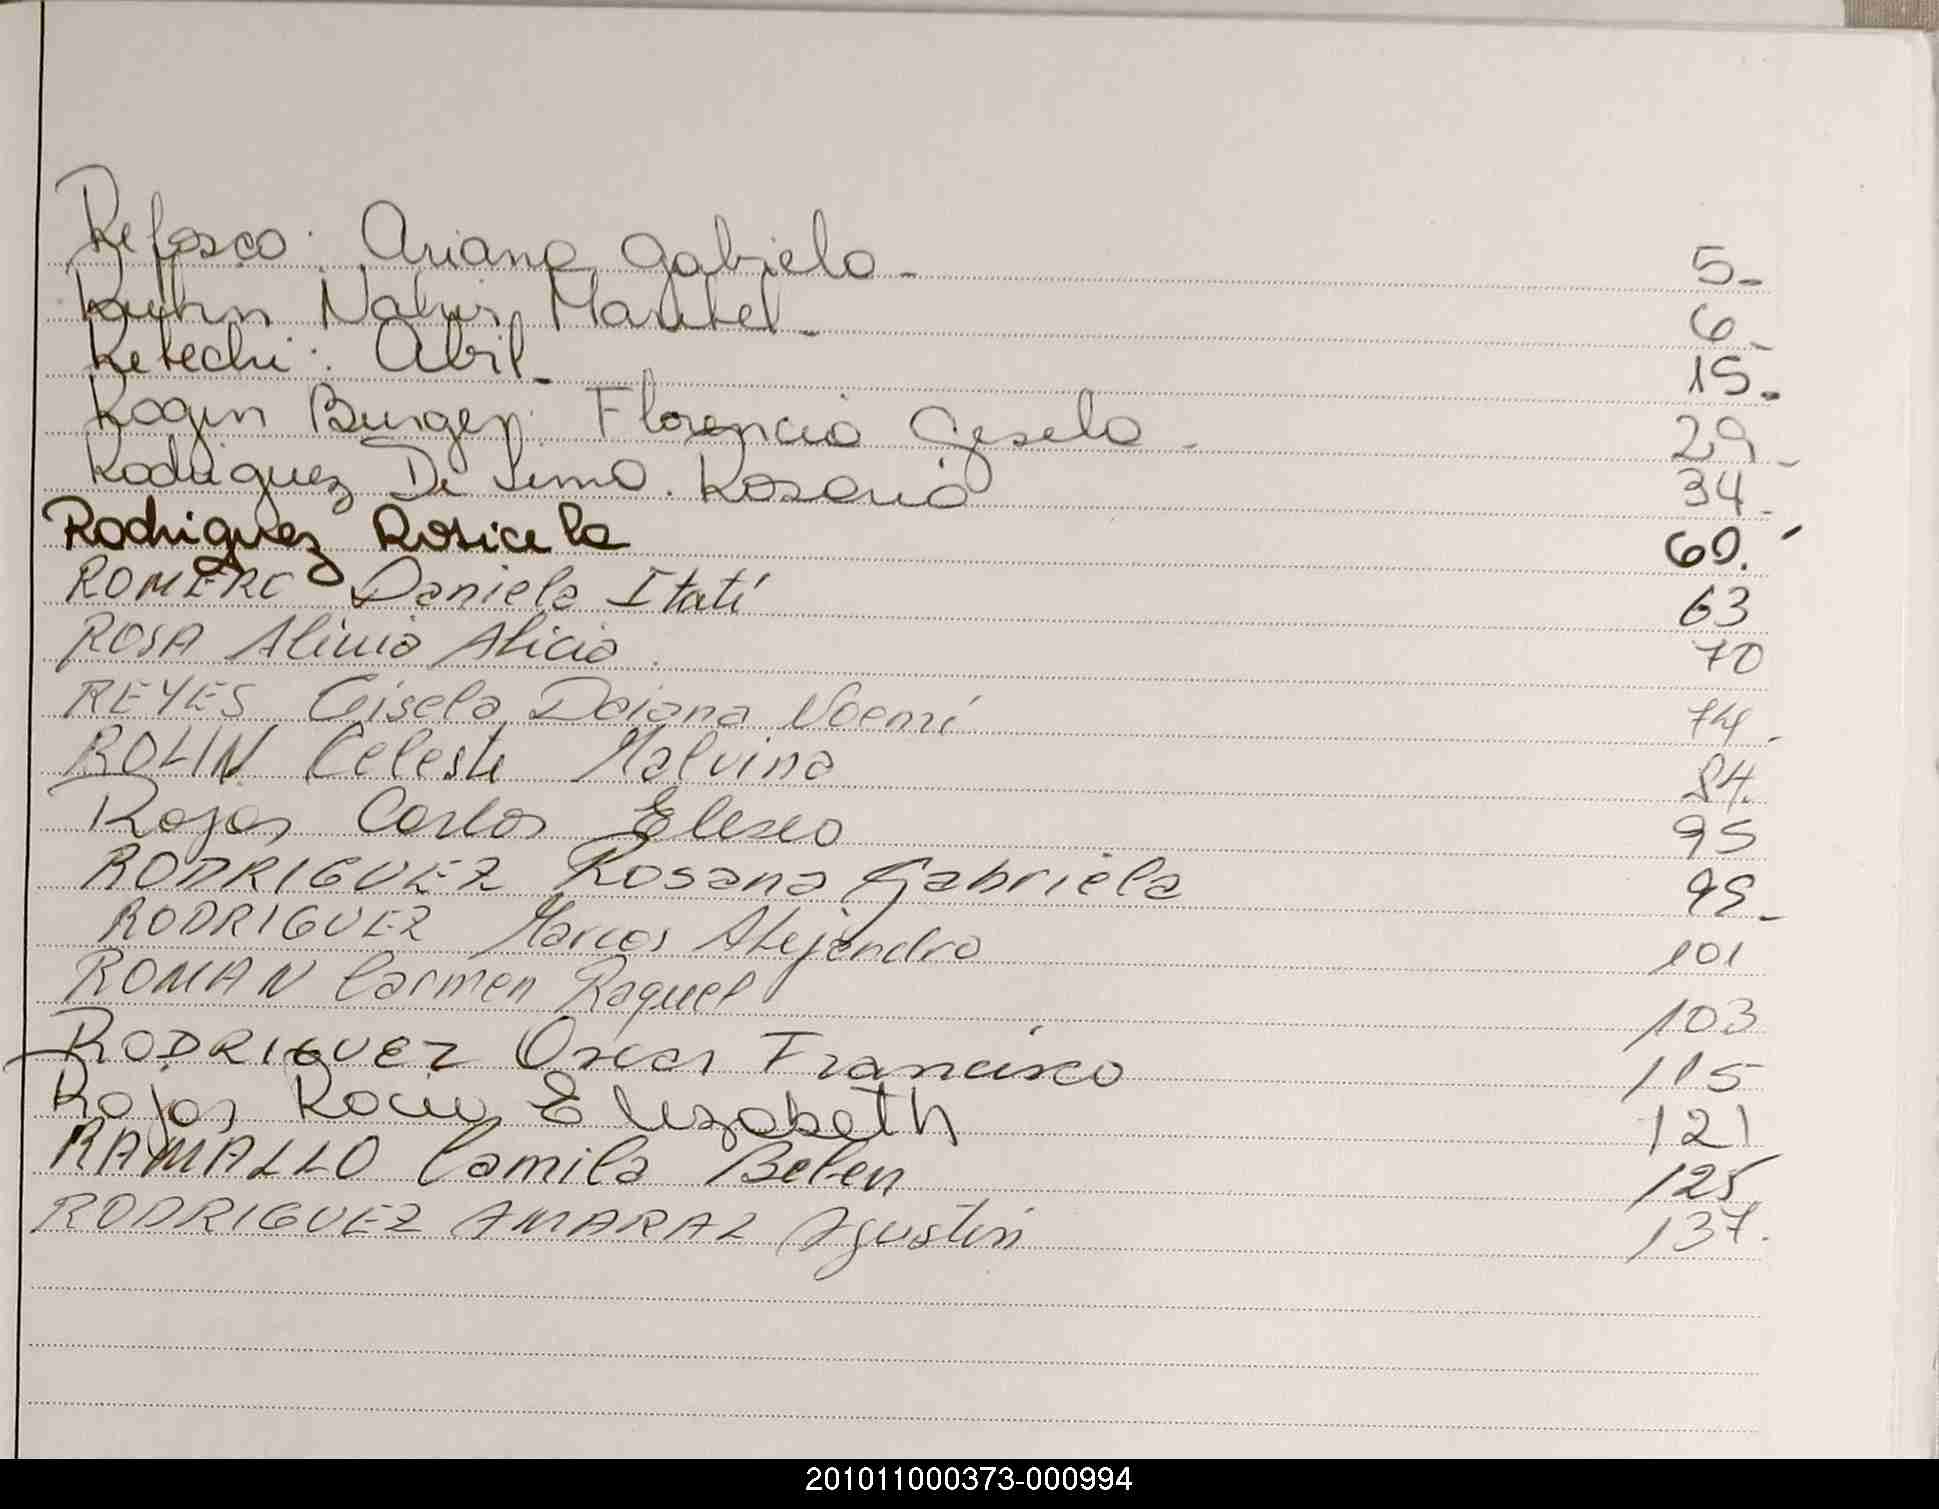 Refosco: Ariana Gabriela - 5-
Ruhn Nahir Maribel - 6-
Retechi: Abril - 15-
Rogin Burger: Florencia Gisela - 29-
Rodriguez De Lima. Rosario 34-
Rodriguez Rosicela 60.
ROMERO Daniela Itatí 63
ROSA Alicia 70
REYES Gisela Daiana Noemí 74.
ROLIN Celeste Malvina 84.
Rojas Carlos Eliseo 95
RODRIGUEZ Rosana Gabriela 99-
RODRIGUEZ Marcos Alejandro 101
ROMAN Carmen Raquel 103
RODRIGUEZ Oscar Francisco 115
Rojas Rocio Elizabeth 121
RAMALLO Camila Belen 125
RODRIGUEZ AMARAL Agustin 137.
201011000373-000994